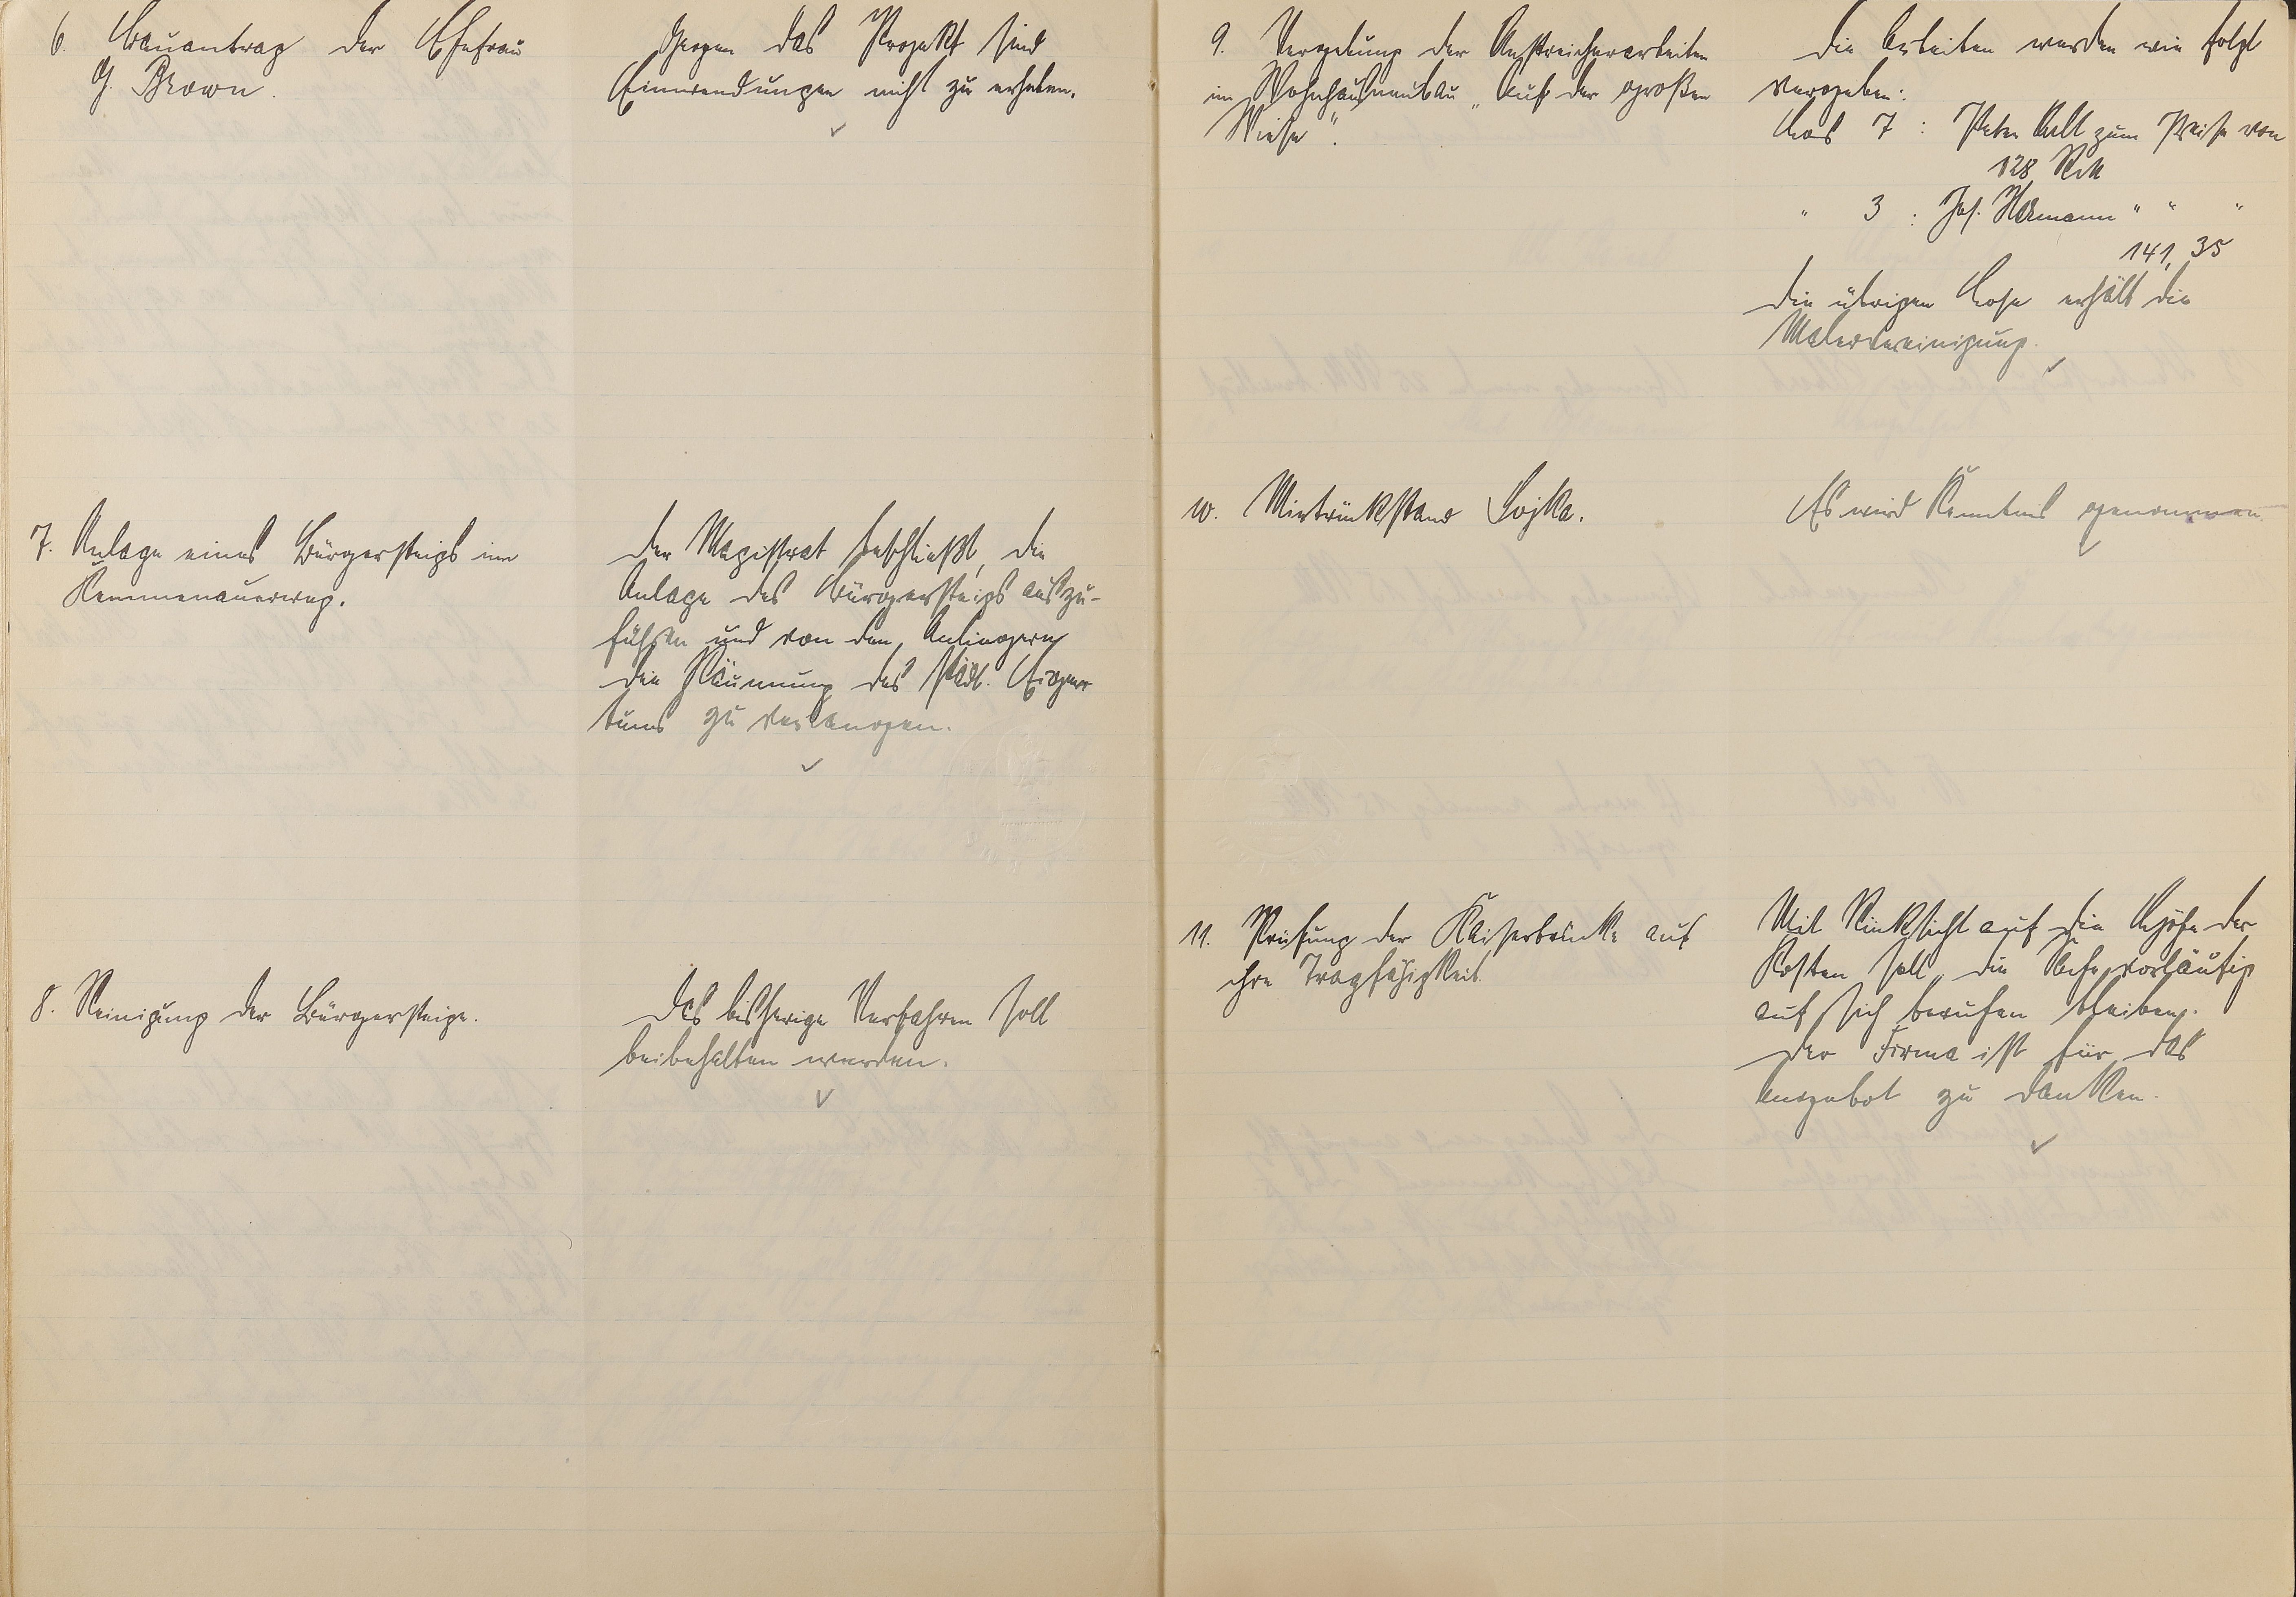 6. Bauantrag der Ehefrau
G. Brown.
Gegen das Projekt sind
Einwendungen nicht zu erheben.
7. Anlage eines Bürgersteigs im
Kemmenauerweg.
Der Magistrat beschließt, die
Anlage des Bürgersteigs auszu-
führen und von den Anliegern
die Räumung des städt. Eigen-
tums zu verlangen.
8. Reinigung der Bürgersteige.
Das bisherige Verfahren soll
beibehalten werden.
9. Vergebung der Anstreicherarbeiten
im Wohnhausneubau "Auf der großen
Wiese".
Die Arbeiten werden wie folgt
vergeben:
Los 7 : Peter Alt zum Preise von
128 RM
" 3 : Jos. " " "
141,35
Die übrigen Lose erhält die
Malervereinigung.
10. Mietrückstand Sojka.
Es wird Kenntnis genommen.
11. Prüfung der Kaiserbrücke auf
ihre Tragfähigkeit.
Mit Rücksicht auf die Höhe der
Kosten soll die Sache vorläufig
auf sich beruhen bleiben.
Der Firma ist für das
Angebot zu danken.